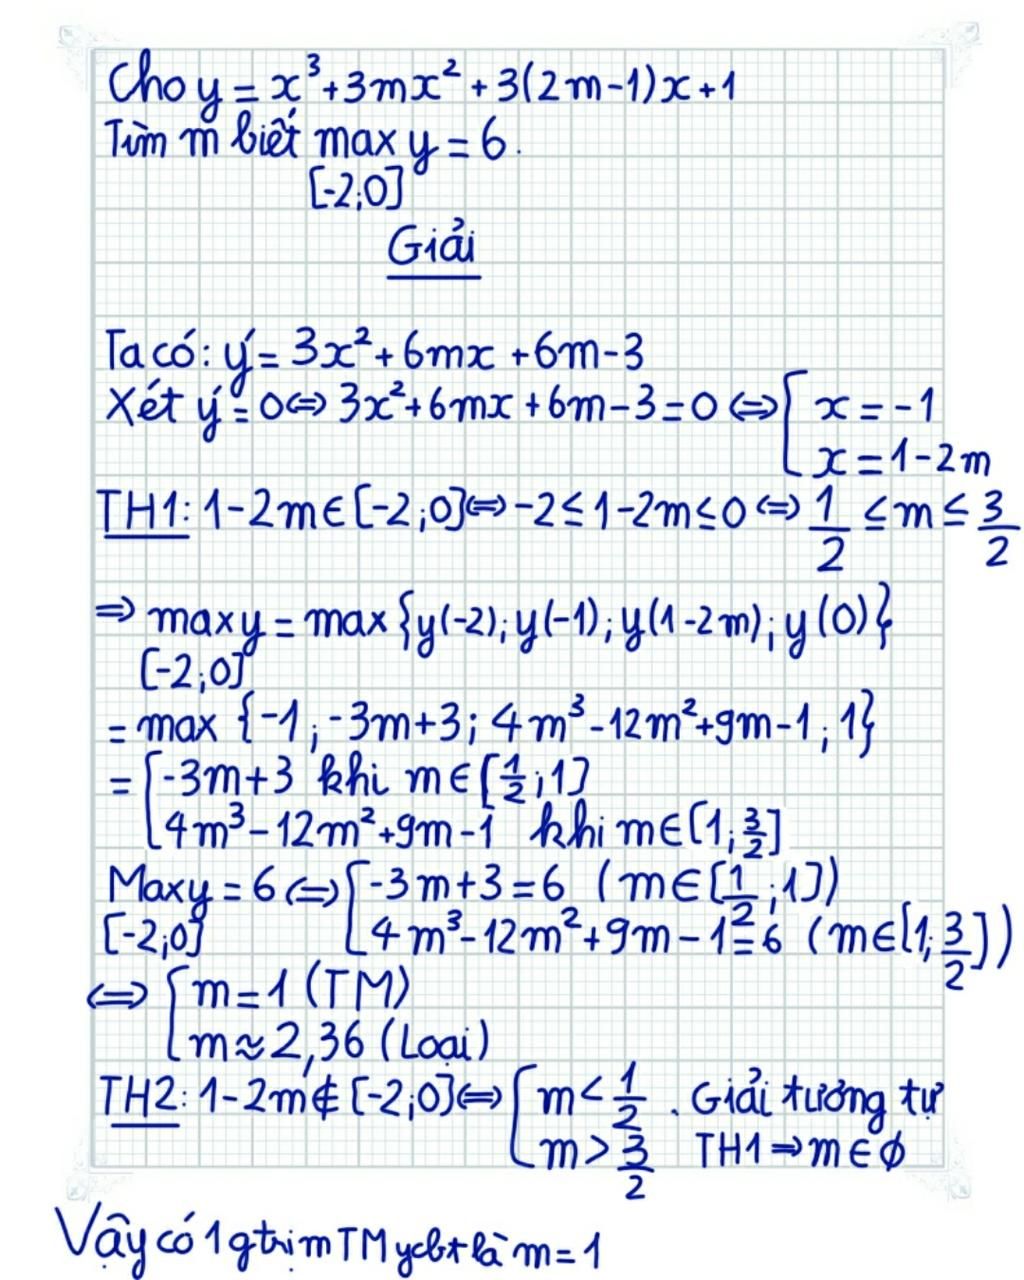 Cho y = x³+3mx²+3(2m-1)x+1
Tìm m biết max y = 6.
[-2;0]
Giải
Ta có: y' = 3x²+6mx+6m-3
Xét y' = 0 ⇔ 3x²+6mx+6m-3=0 ⇔ [ x = -1
x = 1-2m
TH1: 1-2m ∈ [-2;0] ⇔ -2 ≤ 1-2m ≤ 0 ⇔ 1/2 ≤ m ≤ 3/2
⇒ max y = max {y(-2); y(-1); y(1-2m); y(0)}
[-2;0]
= max {-1; -3m+3; 4m³-12m²+9m-1; 1}
= [ -3m+3 khi m ∈ [1/2;1]
4m³-12m²+9m-1 khi m ∈ [1;3/2]
Max y = 6 ⇔ [ -3m+3 = 6 (m ∈ [1/2;1])
[-2;0] 4m³-12m²+9m-1 = 6 (m ∈ [1;3/2])
⇔ [ m = 1 (TM)
m ≈ 2,36 (Loại)
TH2: 1-2m ∉ [-2;0] ⇔ [ m < 1/2 . Giải tương tự
m > 3/2 TH1 ⇒ m ∈ ϕ
Vậy có 1 gtrị m TM ycbt là m = 1